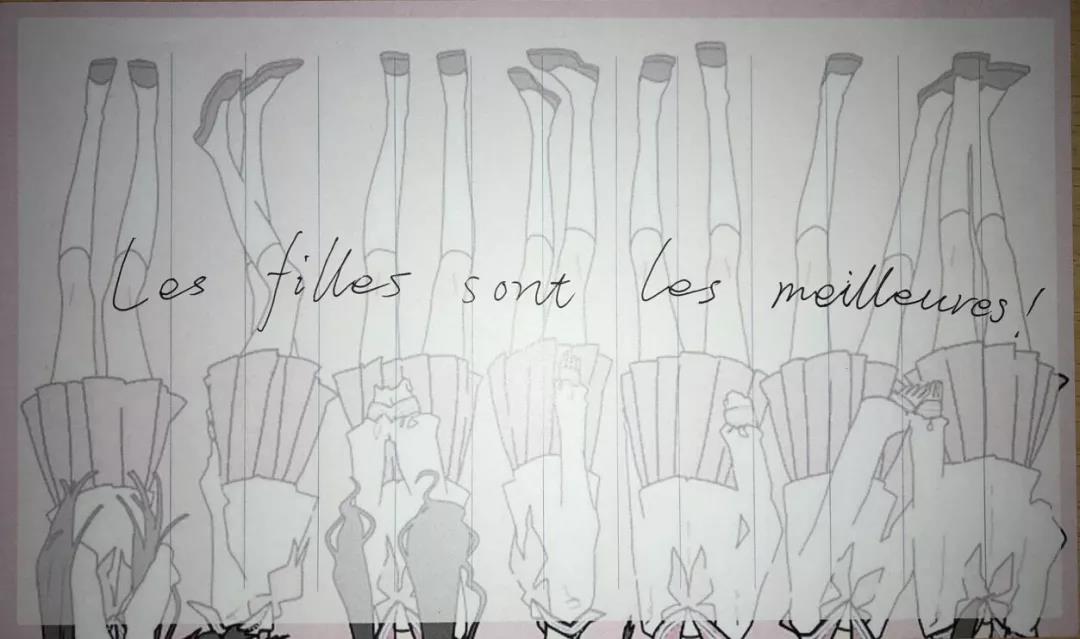 Les filles sont les meilleures!